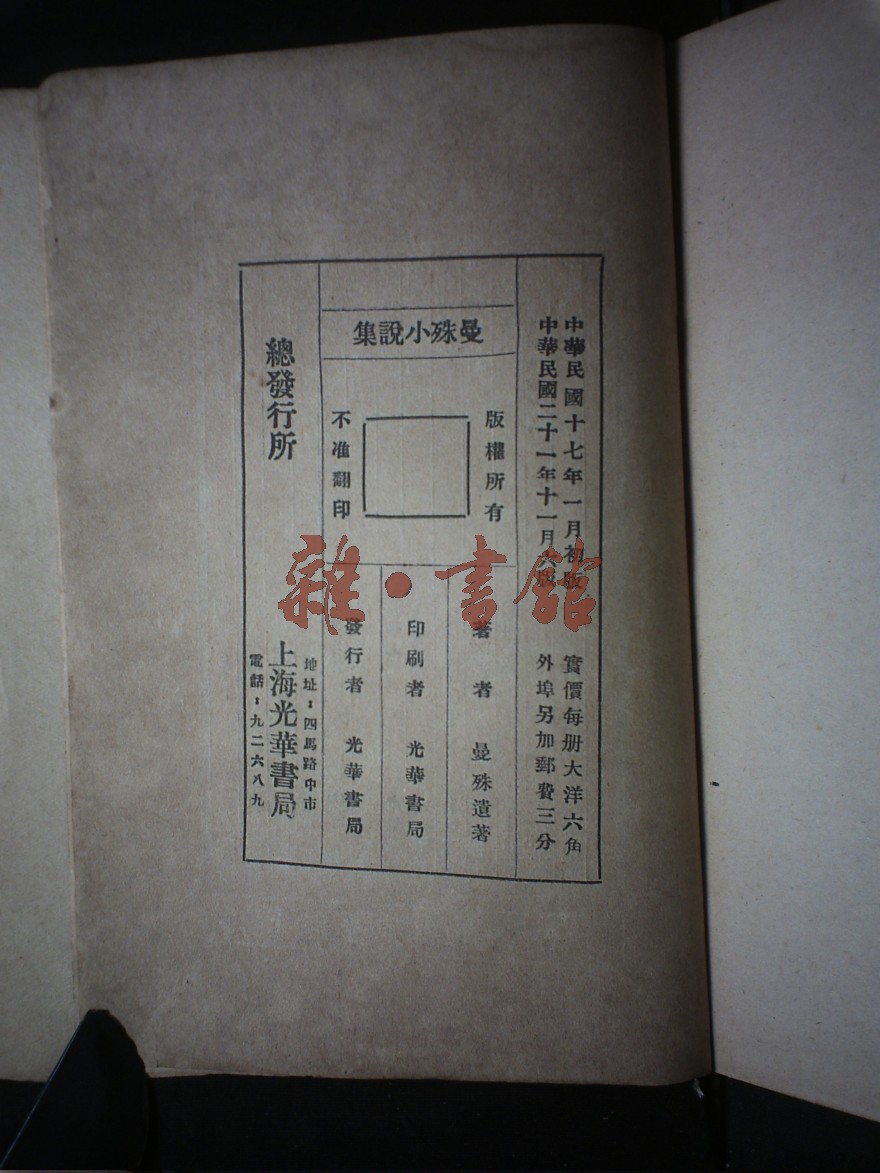 中華民國十七年一月初版
中華民國二十一年十一月六版
實價每册大洋六角
外埠另加郵費三分
曼殊小說集
版權所有
不准翻印
著者 曼殊遺著
印刷者 光華書局
發行者 光華書局
總發行所
地址：四馬路中市
上海光華書局
電話：九二六八九
雜·書館